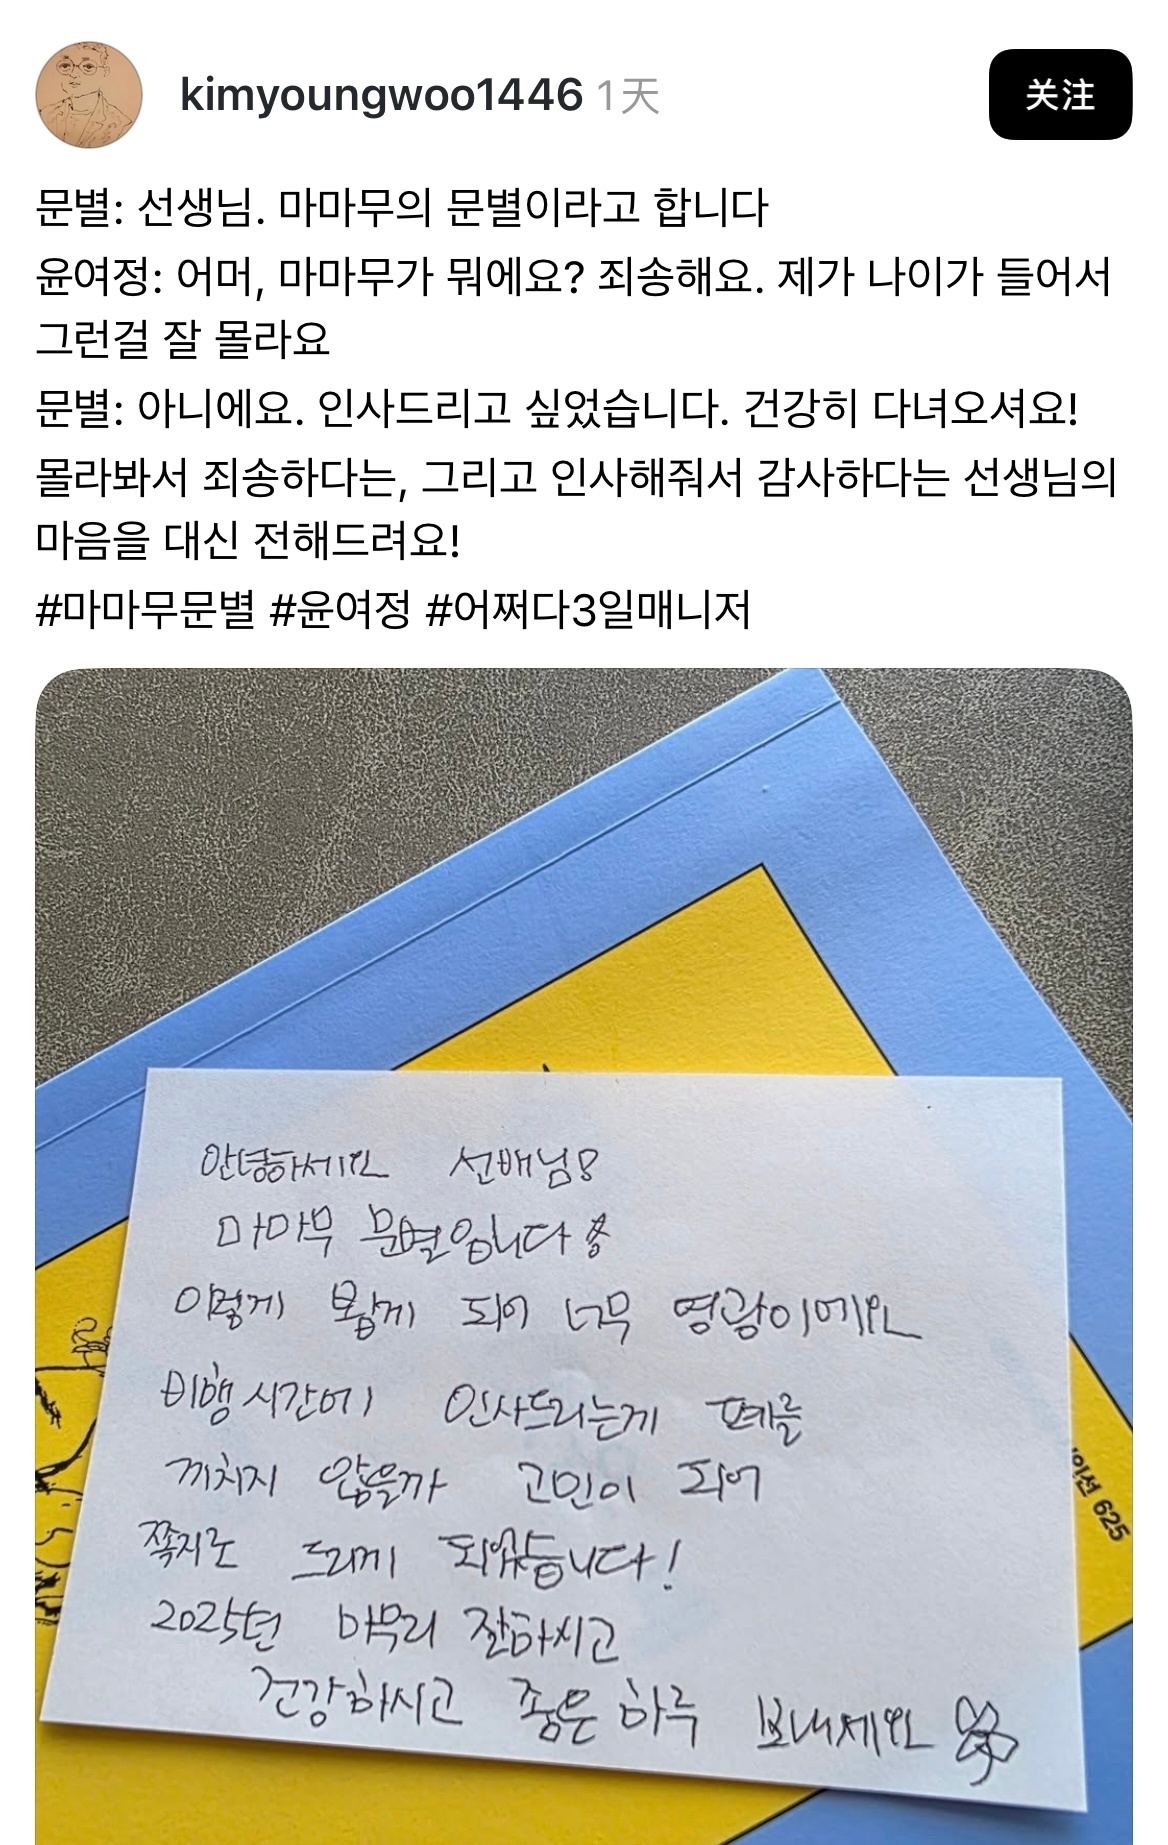 kimyoungwoo1446 1天
关注
문별: 선생님. 마마무의 문별이라고 합니다
윤여정: 어머, 마마무가 뭐에요? 죄송해요. 제가 나이가 들어서
그런걸 잘 몰라요
문별: 아니에요. 인사드리고 싶었습니다. 건강히 다녀오셔요!
몰라봐서 죄송하다는, 그리고 인사해줘서 감사하다는 선생님의
마음을 대신 전해드려요!
#마마무문별 #윤여정 #어쩌다3일매니저
안녕하세요 선배님!
마마무 문별입니다
이렇게 뵙게 되어 너무 영광이에요
비행 시간에 인사드리는게 폐를
끼치지 않을까 고민이 되어
쪽지로 드리게 되었습니다!
2025년 마무리 잘하시고
건강하시고 좋은 하루 보내세요
625